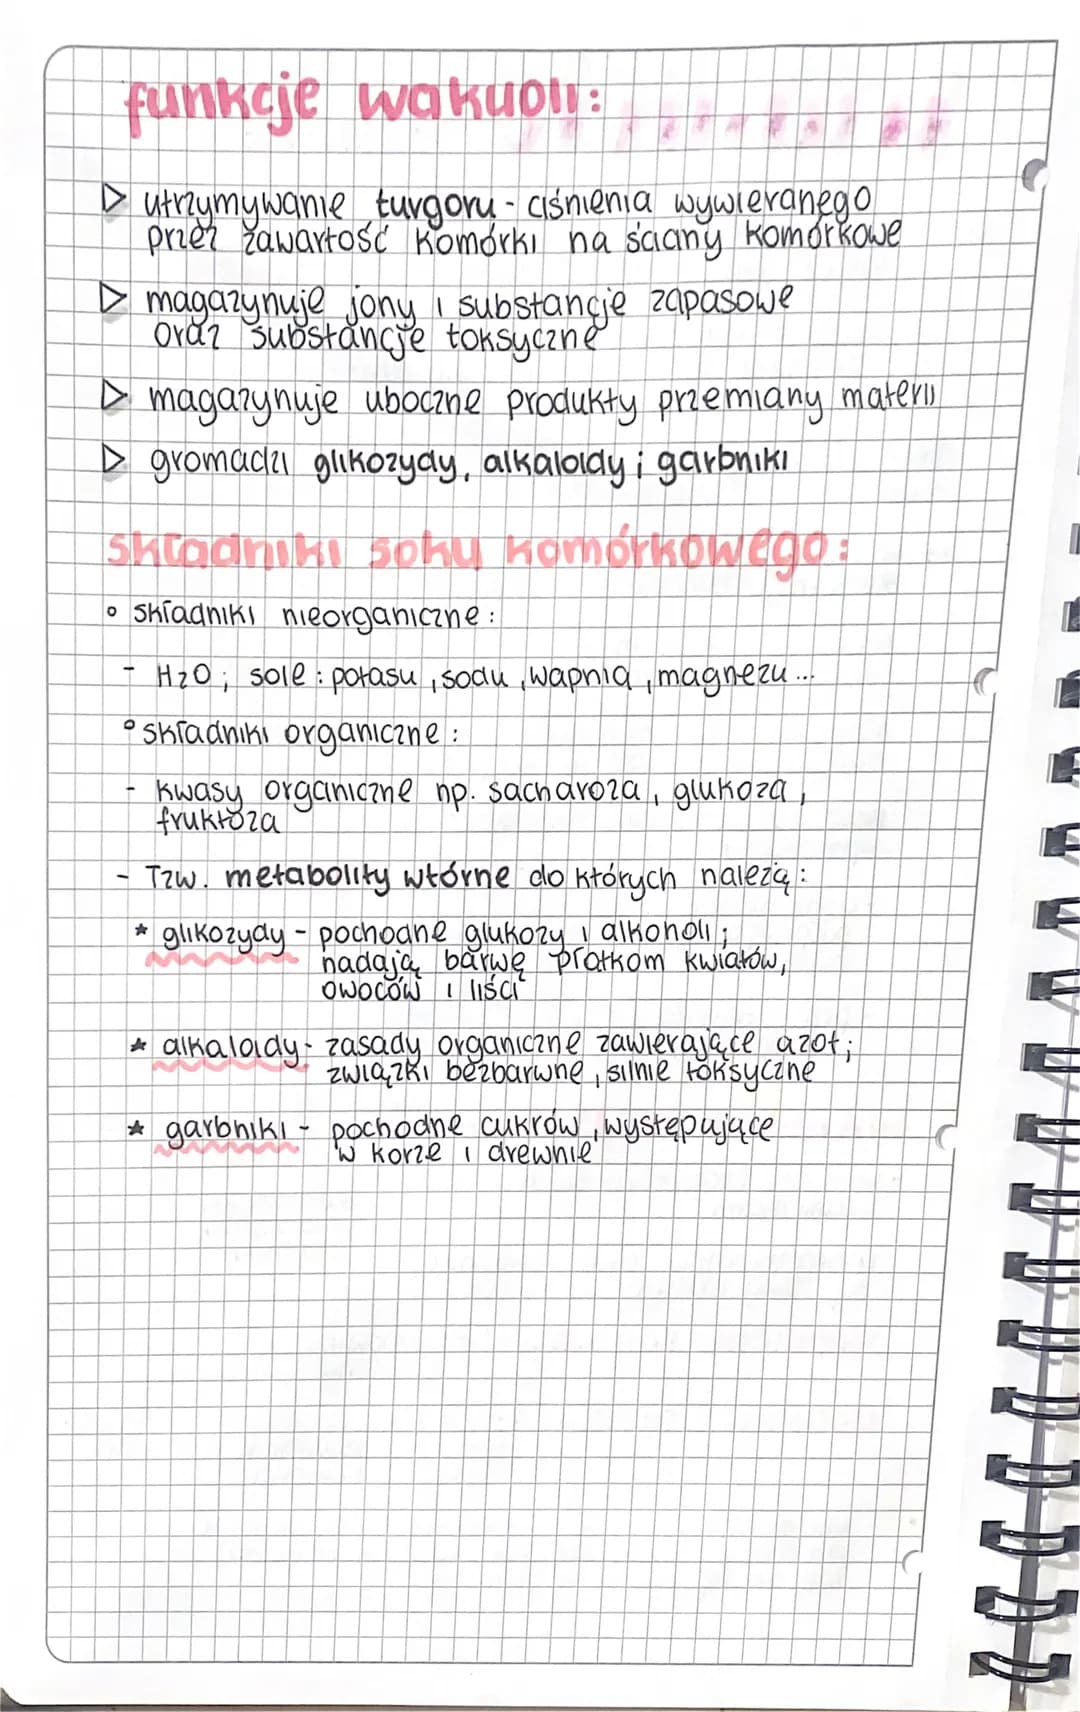 funkcje wakuoli:
▷ utrzymywanie turgoru - ciśnienia wywieranego
przez zawartość komórki na ściany komórkowe
▷ magazynuje jony i substancje zapasowe
oraz substancje toksyczne
▷ magazynuje uboczne produkty przemiany materii
▷ gromadzi glikozydy, alkaloidy i garbniki
składniki soku komórkowego:
° składniki nieorganiczne:
- H2O; sole: potasu, sodu, wapnia, magnezu...
° składniki organiczne:
- kwasy organiczne np. sacharoza, glukoza,
fruktoza
- Tzw. metabolity wtórne do których należą:
* glikozydy - pochodne glukozy i alkoholi;
nadają barwę płatkom kwiatów,
owoców i liści
* alkaloidy - zasady organiczne zawierające azot;
związki bezbarwne, silnie toksyczne
* garbniki - pochodne cukrów, występujące
w korze i drewnie